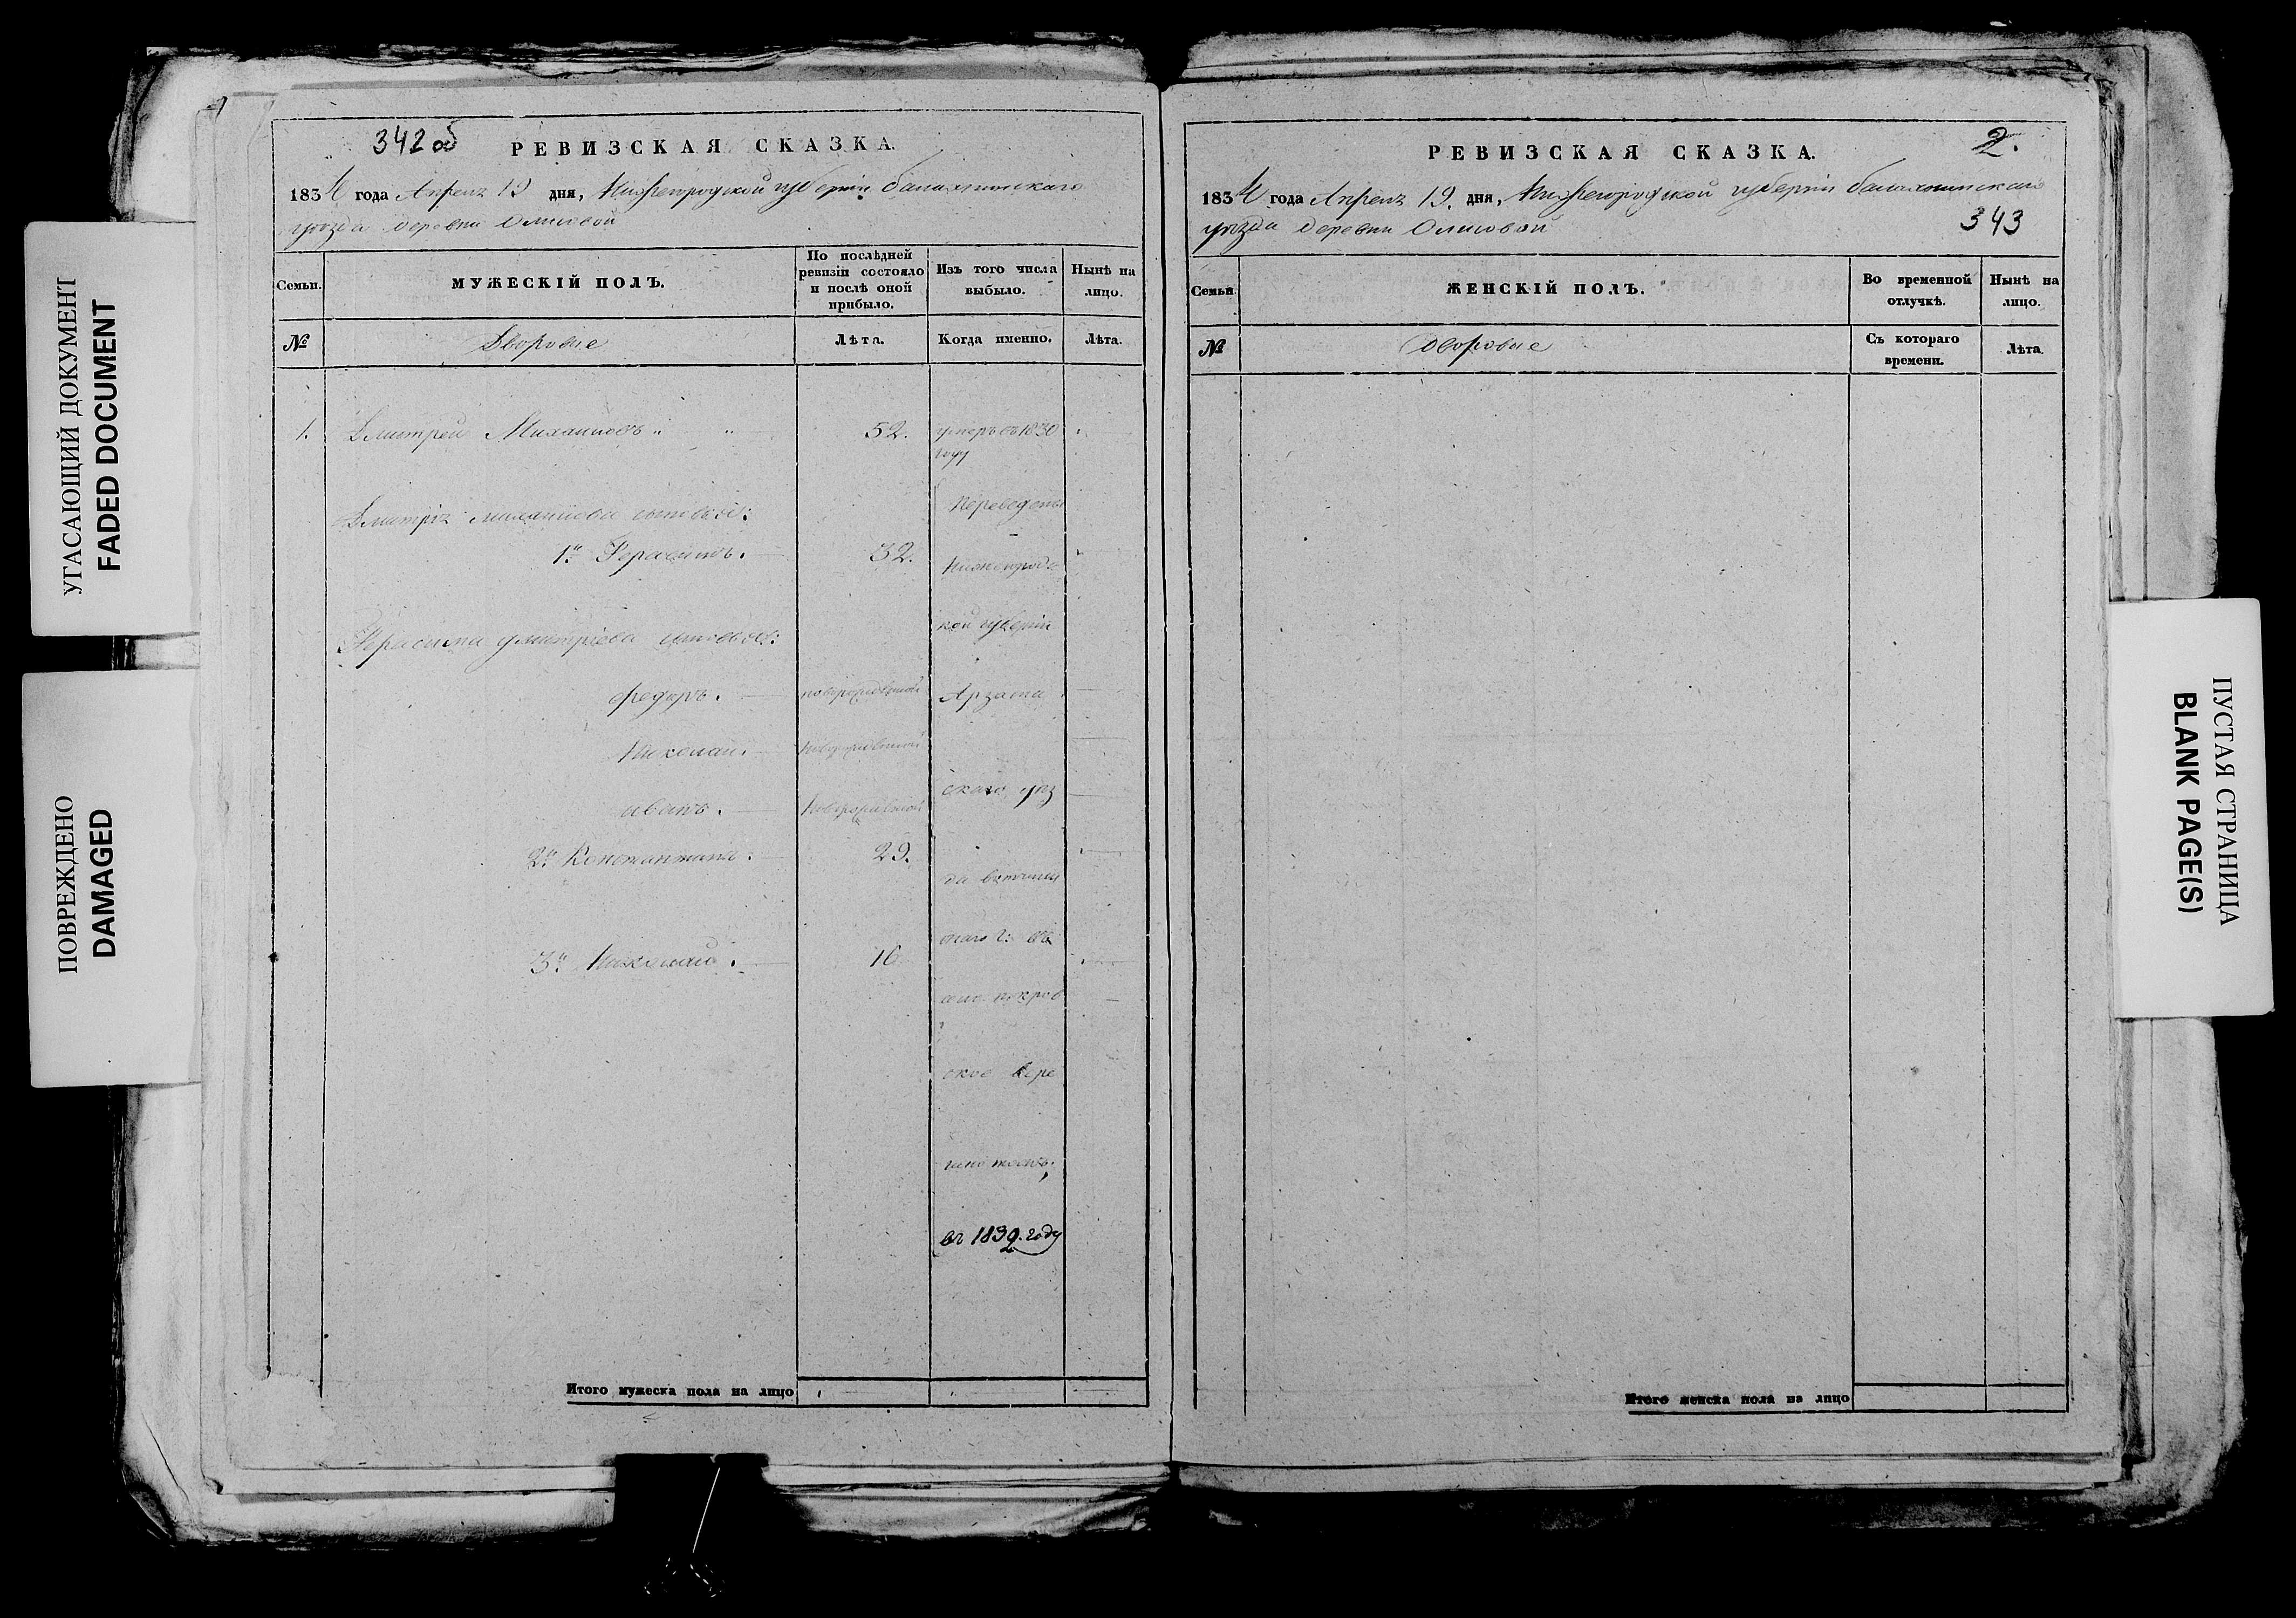 УГАСАЮЩИЙ ДОКУМЕНТ
FADED DOCUMENT
ПОВРЕЖДЕНО
DAMAGED
342 об
РЕВИЗСКАЯ СКАЗКА.
1834 года Апреля 19 дня, Нижегородской губернии балахнинскаго
уезда деревни Олисовой
Семьи.
МУЖЕСКІЙ ПОЛЪ.
По послѣдней ревизіи состояло и послѣ оной прибыло.
Изъ того числа выбыло.
Нынѣ на лицо.
№
Дворовые
Лѣта.
Когда именно.
Лѣта.
1. Дмитрей Михайловъ 52. умеръ въ 1830
году
Дмитрія михайлова сыновья:
Переведены
1й Герасимъ. 32.
Нижегородс
кой губерніи
Герасима дмитріева сыновья:
федоръ. новорожденной Арзама
Николай. новорожденной
скаго уез
иванъ. новорожденной
2й Константинъ. 29.
да
3й Николай. 16
село покров
ское
тожъ.
въ 1832 году
Итого мужеска пола на лицо
2.
РЕВИЗСКАЯ СКАЗКА.
1834 года Апреля 19. дня, Нижегородской губерніи балахнинскаго
уезда деревни Олисовой
343
Семьи
ЖЕНСКІЙ ПОЛЪ.
Во временной отлучкѣ.
Нынѣ на лицо.
№
Дворовые
Съ котораго времени.
Лѣта.
Итого женска пола на лицо
ПУСТАЯ СТРАНИЦА
BLANK PAGE(S)